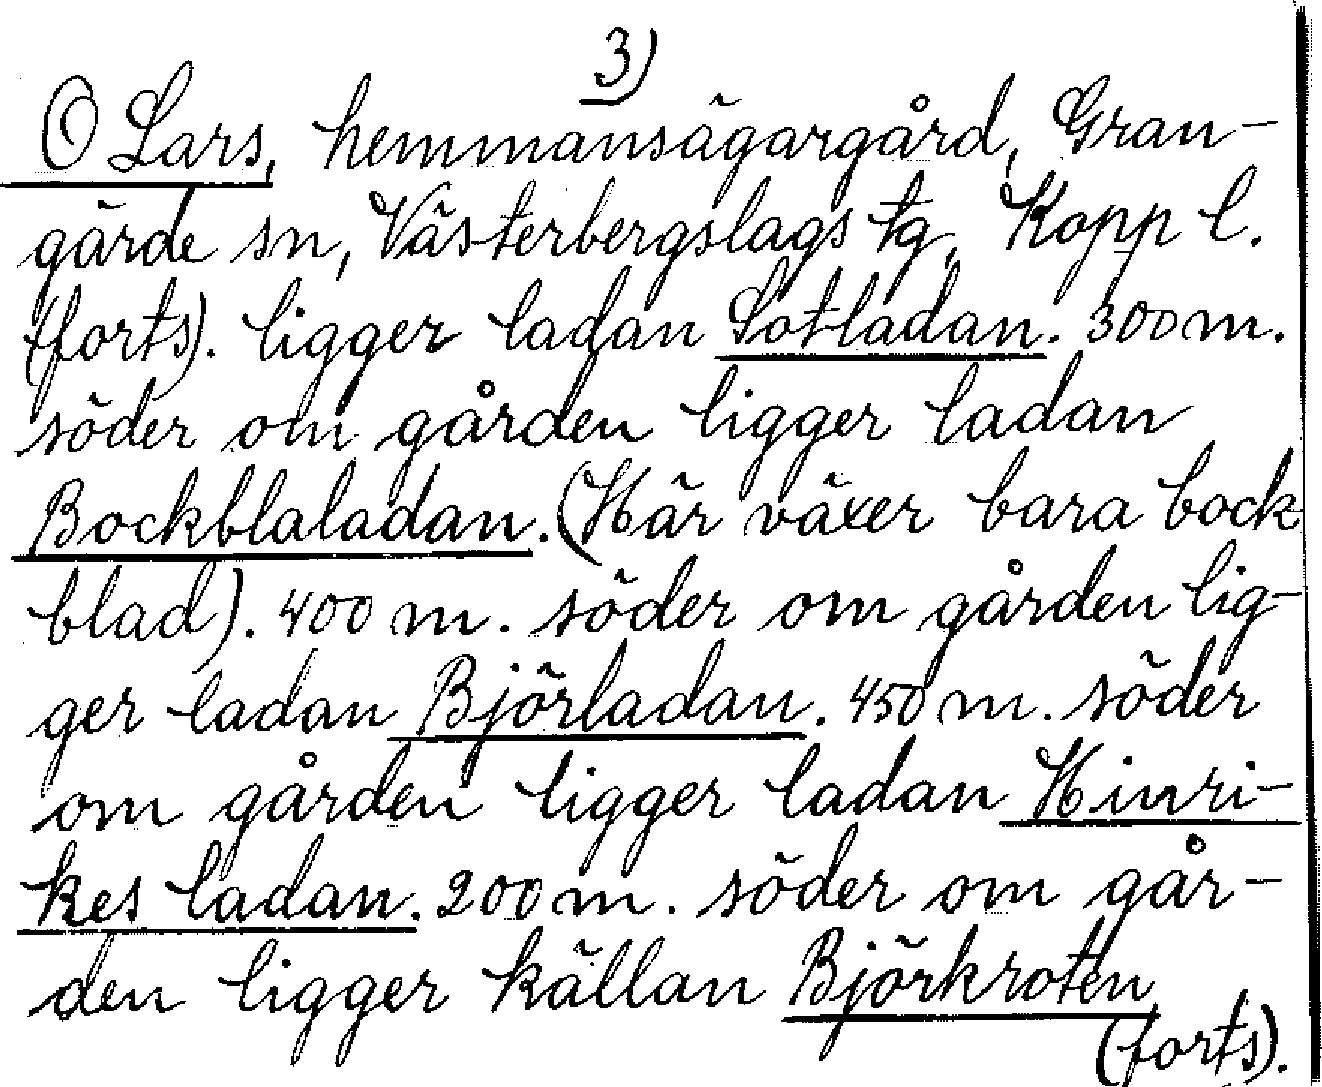 3)
O Lars, hemmansägargård, Gran-
gärde sn, Västerbergslags tg, Kopp l.
(forts). ligger ladan Sotladan. 300 m.
söder om gården ligger ladan
Bockblaladan. (Här växer bara bock
blad). 400 m. söder om gården lig-
ger ladan Björladan. 450 m. söder
om gården ligger ladan Hinri-
kes ladan. 200 m. söder om går-
den ligger källan Björkroten
(forts).